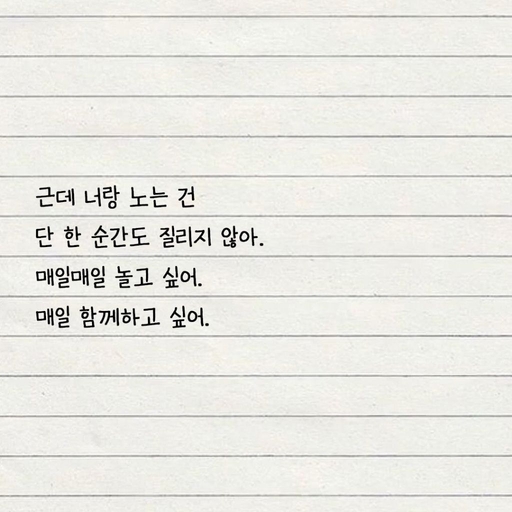 근데 너랑 노는 건
단 한 순간도 질리지 않아.
매일매일 놀고 싶어.
매일 함께하고 싶어.